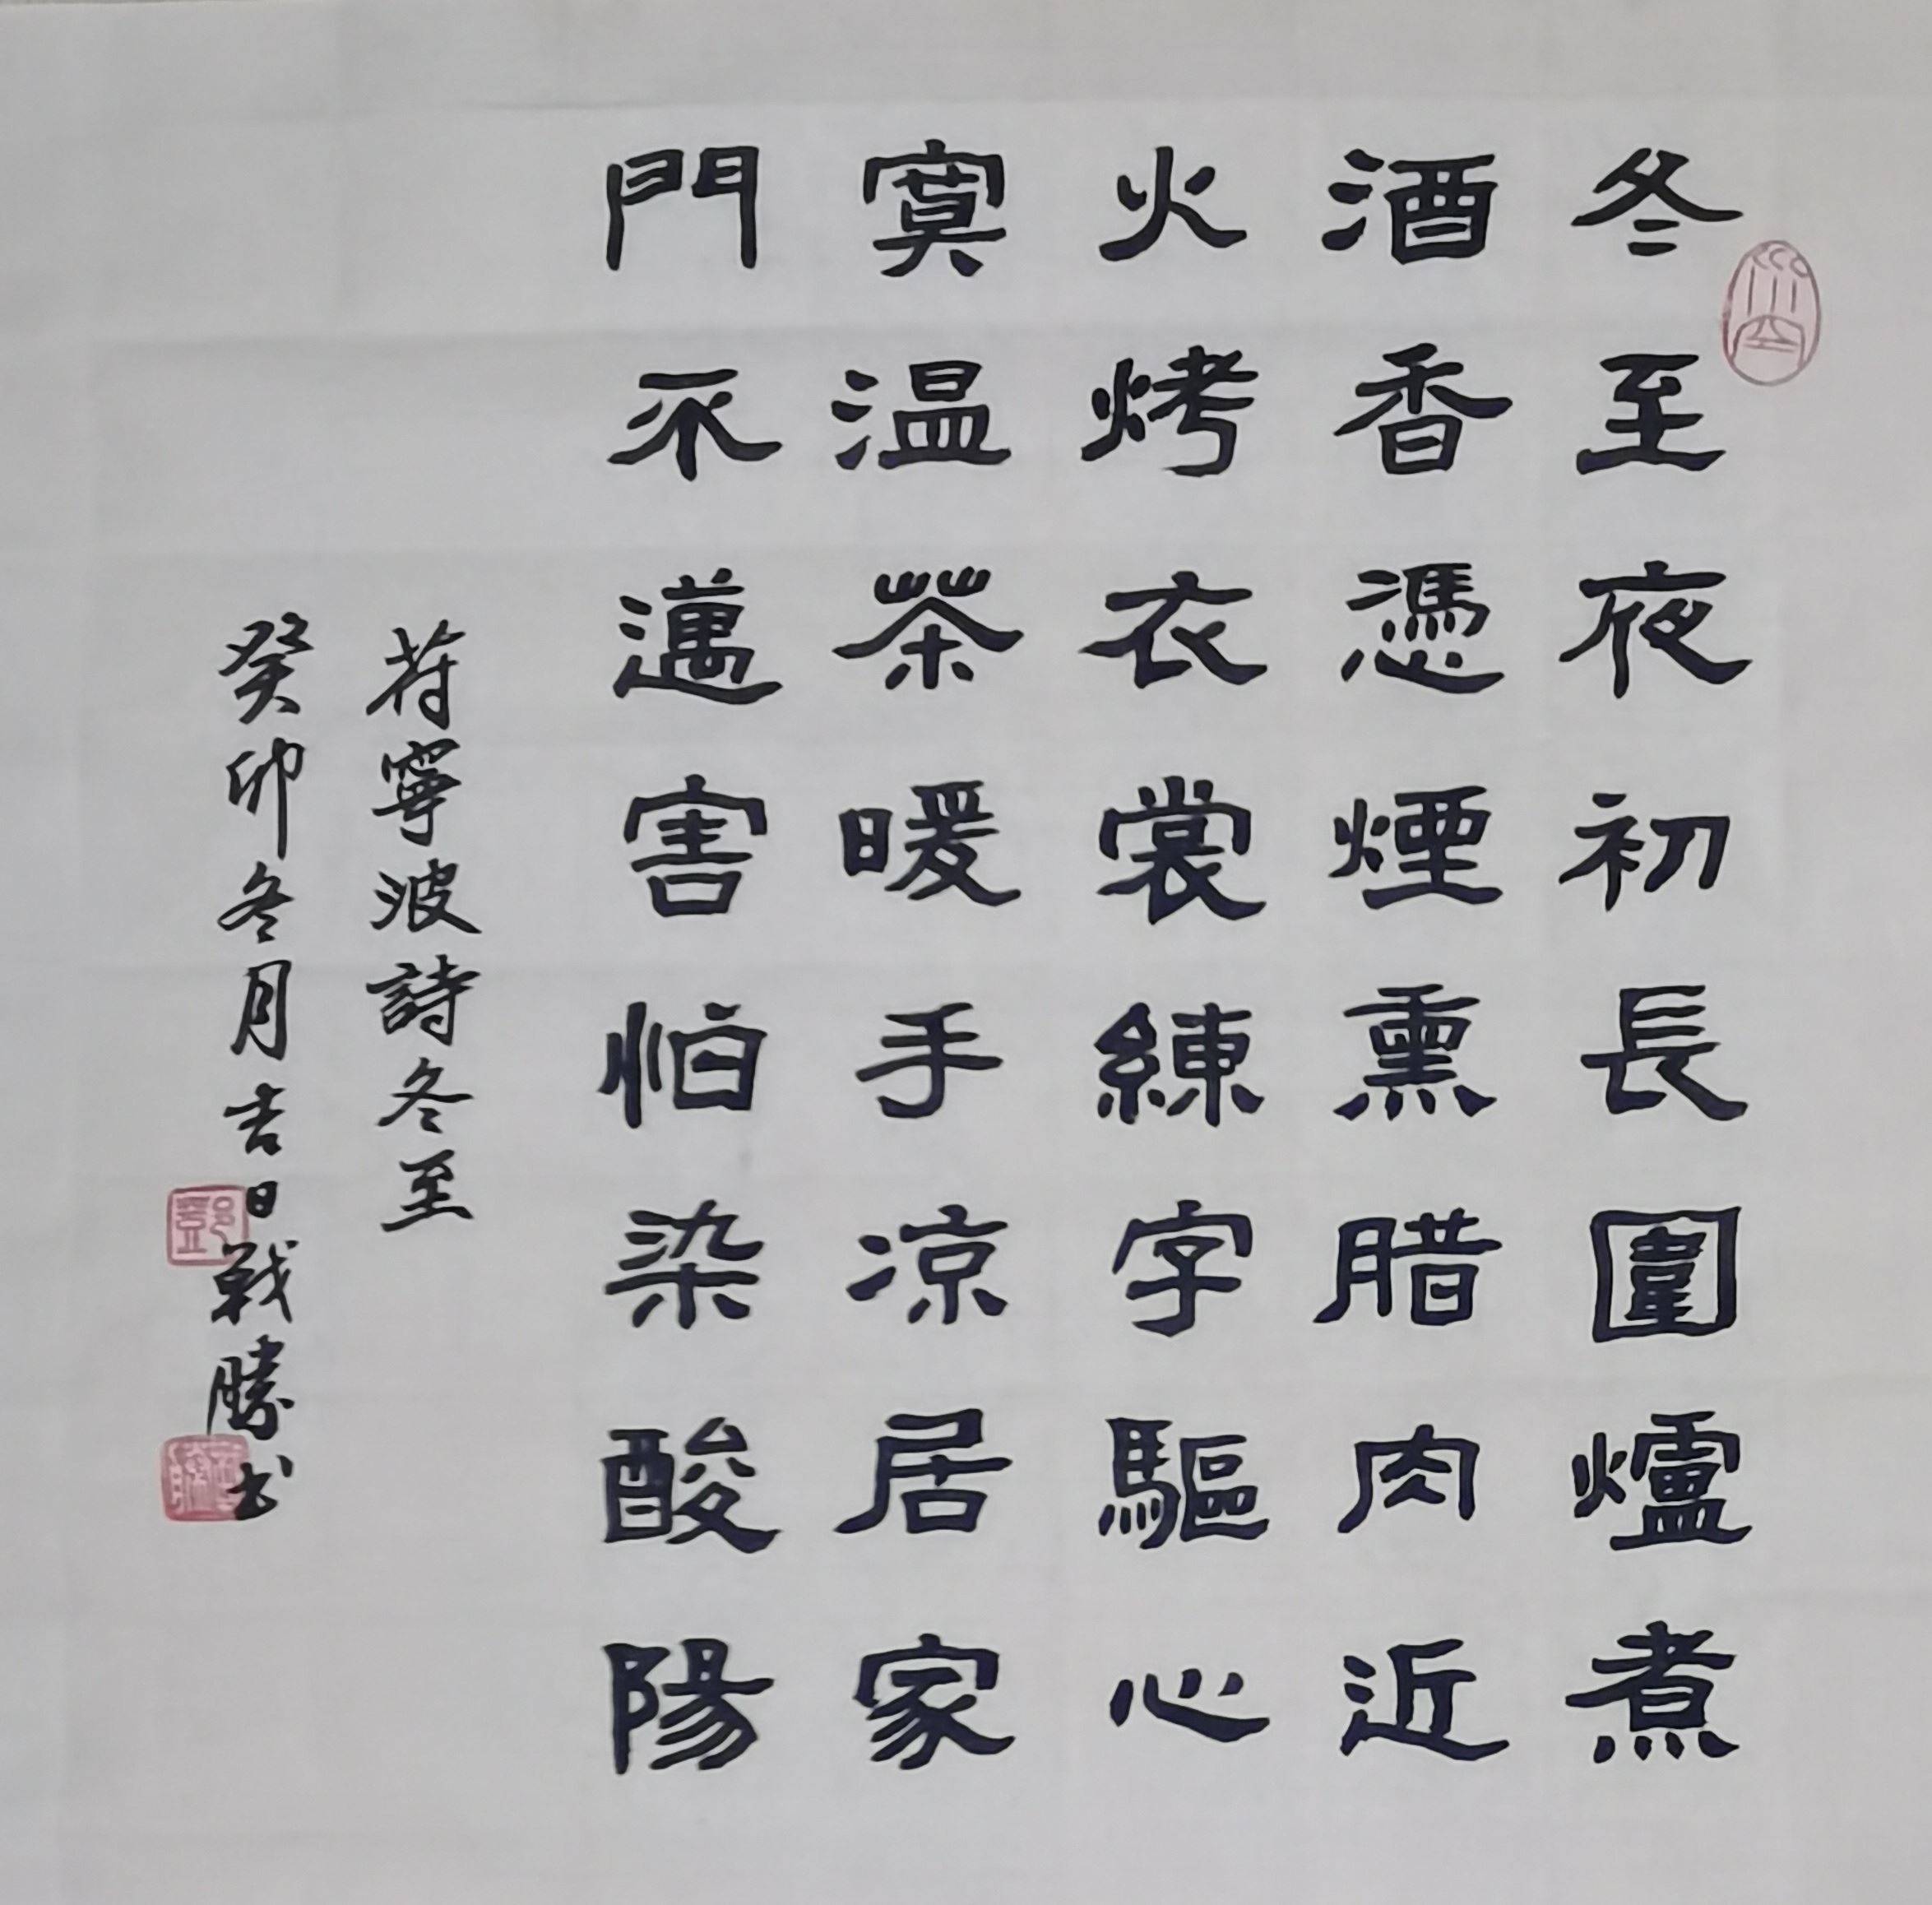 冬至夜初長圍爐煮
酒香憑煙熏腊肉近
火烤衣裳練字驅心
寞温茶暖手凉居家
門不邁害怕染酸陽
符寧波詩冬至
癸卯冬月吉日戰勝书
鄧